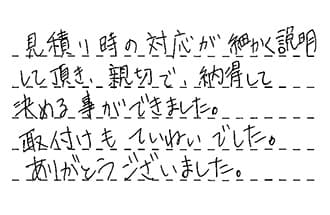 見積り時の対応が細かく説明
して頂き、親切で、納得して
決める事ができました。
取付けもていねいでした。
ありがとうございました。